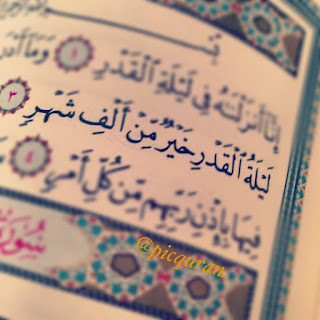 إِنَّا أَنزَلْنَٰهُ فِي لَيْلَةِ ٱلْقَدْرِ ١ وَمَآ
لَيْلَةُ ٱلْقَدْرِ خَيْرٌ مِّنْ أَلْفِ شَهْرٍ ٣
فِيهَا بِإِذْنِ رَبِّهِم مِّن كُلِّ أَمْرٍ ٤
سُورَة
@picquran